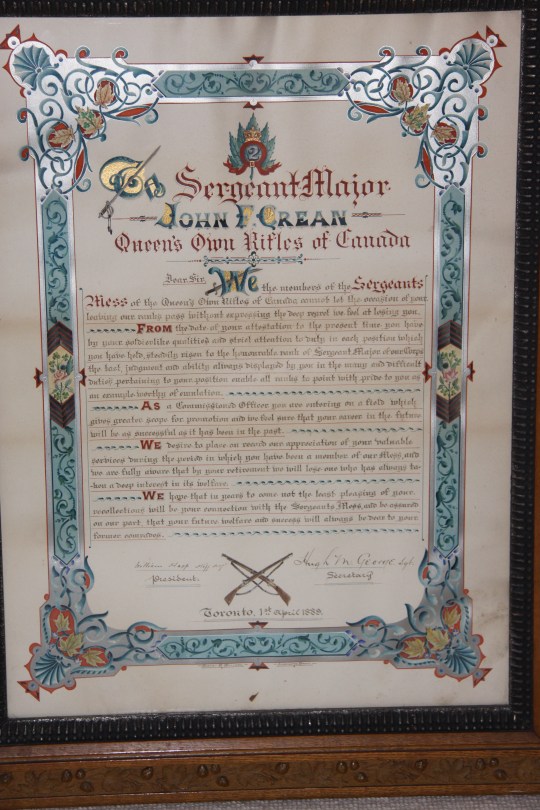 2
To Sergeant Major
John F. Crean
Queen's Own Rifles of Canada
Dear Sir, We the members of the Sergeants
Mess of the Queen's Own Rifles of Canada cannot let the occasion of your
leaving our ranks pass without expressing the deep regret we feel at losing you.
From the date of your attestation to the present time you have
by your soldierlike qualities and strict attention to duty in each position which
you have held, steadily risen to the honourable rank of Sergeant Major of our Corps
the tact, judgment and ability always displayed by you in the many and difficult
duties pertaining to your position enable all ranks to point with pride to you as
an example worthy of emulation.
As a Commissioned Officer you are entering on a field which
gives greater scope for promotion and we feel sure that your career in the future
will be as successful as it has been in the past.
We desire to place on record our appreciation of your valuable
services during the period in which you have been a member of our Mess, and
we are fully aware that by your retirement we will lose one who has always ta-
ken a deep interest in its welfare.
We hope that in years to come not the least pleasing of your
recollections will be your connection with the Sergeants Mess, and be assured
on our part that your future welfare and success will always be dear to your
former comrades.
Hugh M. George Sgt.
President. Secretary
Toronto, 1st April 1889.